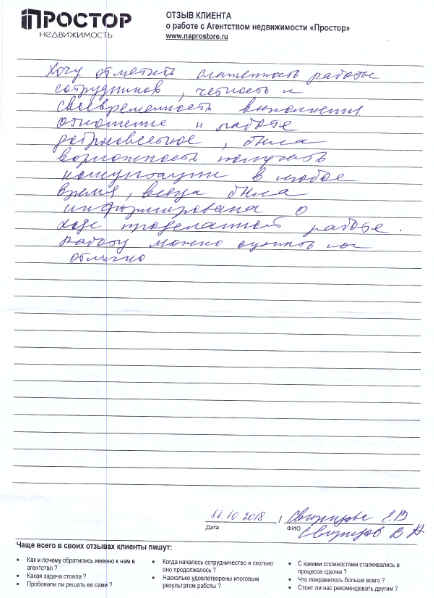 ПРОСТОР
НЕДВИЖИМОСТЬ
ОТЗЫВ КЛИЕНТА
о работе с Агентством недвижимости «Простор»
www.naprostore.ru
Хочу отметить слаженность работы
сотрудников, четкость и
своевременность выполнения
отношение к работе
добросовестное, была
возможность получать
консультации в любое
время, всегда была
информирована о
ходе проделанной работе.
Работу можно оценить на
отлично
11.10.2018
Дата
ФИО
Чаще всего в своих отзывах клиенты пишут:
• Как и почему обратились именно к нам в
агентство ?
• Какая задача стояла ?
• Пробовали ли решать ее сами ?
• Когда началось сотрудничество и сколько
оно продолжалось ?
• Насколько удовлетворены итоговым
результатом работы ?
• С какими сложностями сталкивались в
процессе сделки ?
• Что понравилось больше всего ?
• Стоит ли нас рекомендовать другим ?